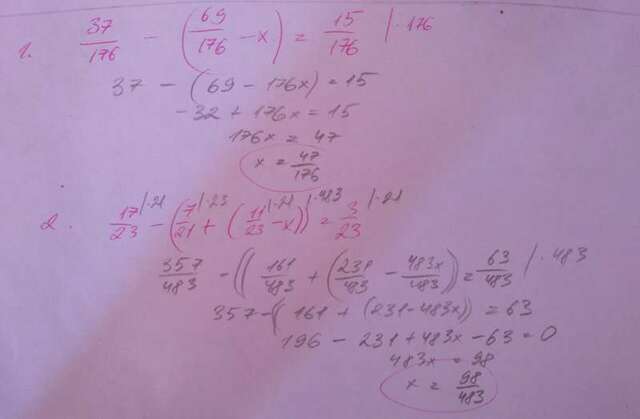 1. 37/176 - (69/176 - x) = 15/176 |·176
37 - (69 - 176x) = 15
-32 + 176x = 15
176x = 47
x = 47/176
2. 17/23 |·21 - (7/21 |·23 + (11/23 |·21 - x)) |·483 = 3/23 |·21
357/483 - ((161/483 + (231/483 - 483x/483)) = 63/483 |·483
357 - (161 + (231 - 483x)) = 63
196 - 231 + 483x - 63 = 0
483x = 98
x = 98/483